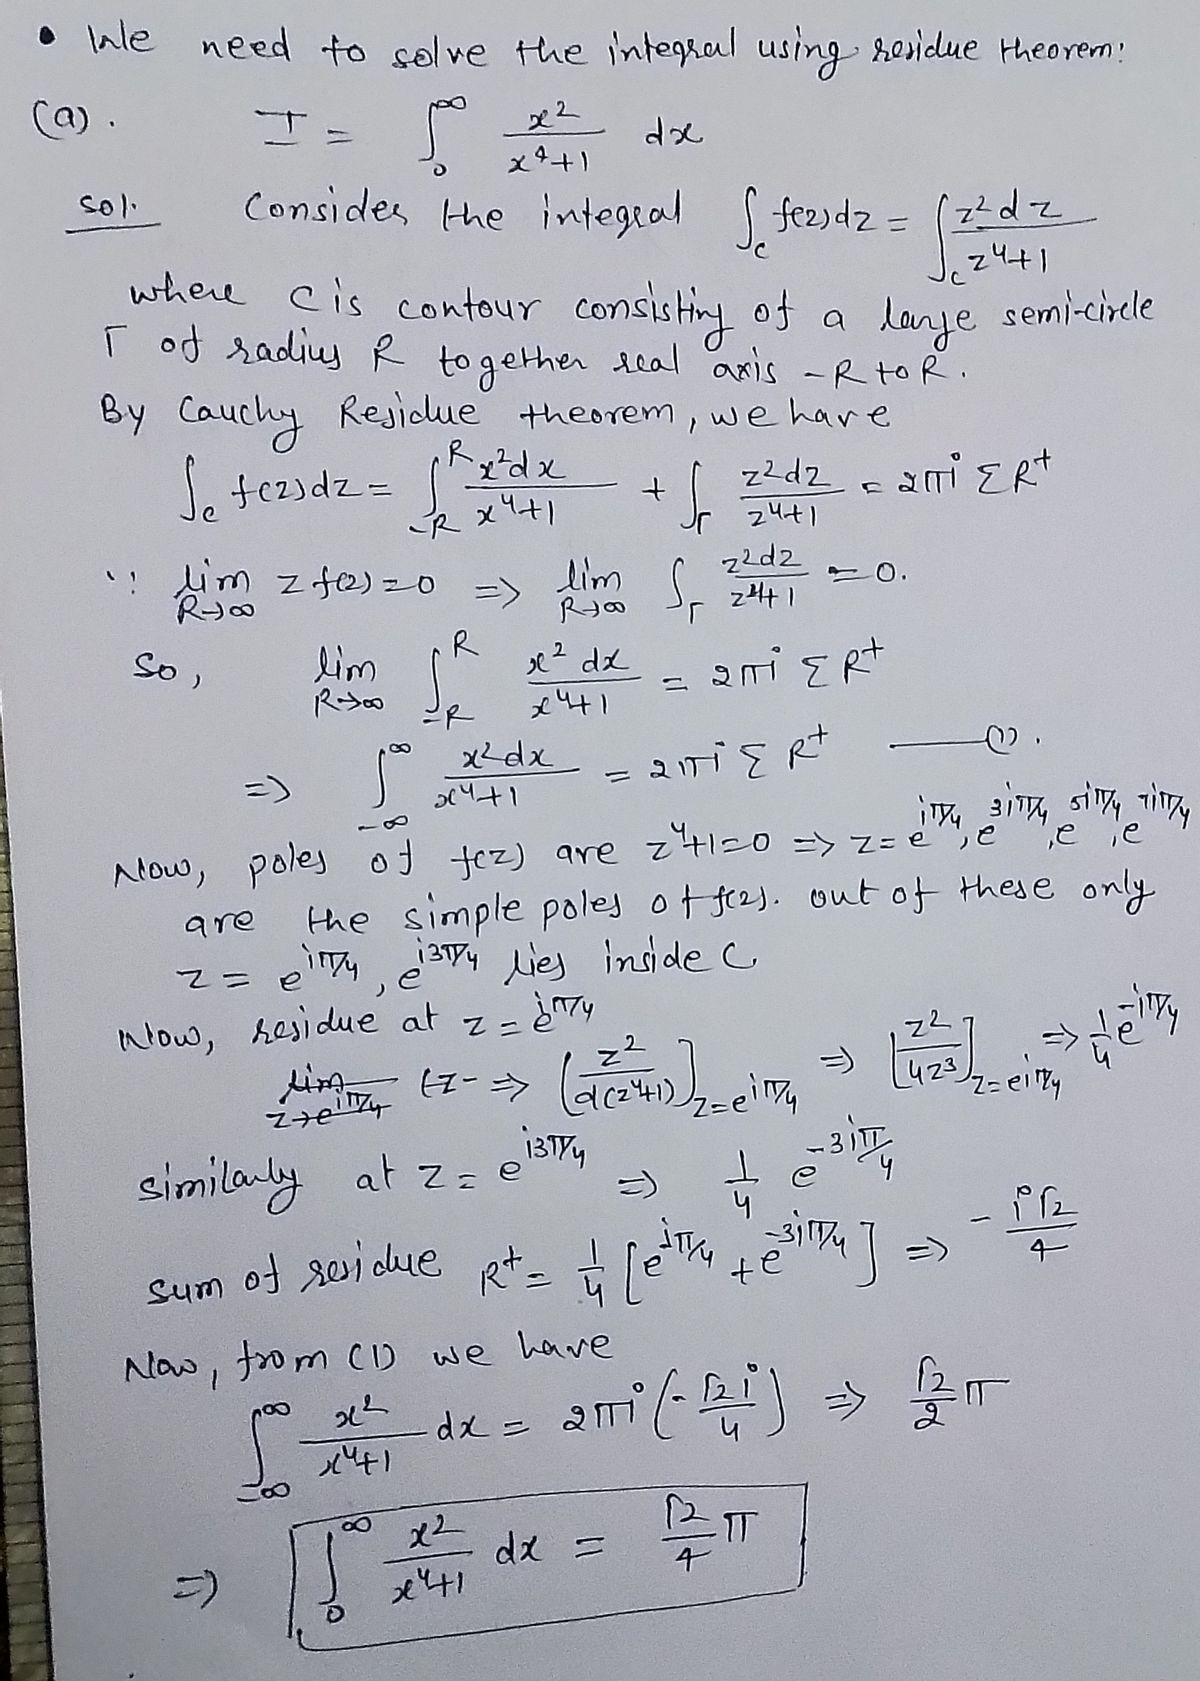 • We need to solve the integral using residue theorem:
(a). I = ∫₀^∞ x²/(x⁴+1) dx
Sol. Consider the integral ∫_C f(z)dz = ∫_C z²dz/(z⁴+1)
where C is contour consisting of a large semi-circle
Γ of radius R together real axis -R to R.
By Cauchy Residue theorem, we have
∫_C f(z)dz = ∫_{-R}^{R} x²dx/(x⁴+1) + ∫_Γ z²dz/(z⁴+1) = 2πi ΣR⁺
∵ lim_{R→∞} z f(z) = 0 => lim_{R→∞} ∫_Γ z²dz/(z⁴+1) = 0.
So, lim_{R→∞} ∫_{-R}^{R} x² dx/(x⁴+1) = 2πi ΣR⁺
=> ∫_{-∞}^{∞} x²dx/(x⁴+1) = 2πi ΣR⁺ —(1).
Now, poles of f(z) are z⁴+1=0 => z = e^{iπ/4}, e^{3iπ/4}, e^{5iπ/4}, e^{7iπ/4}
are the simple poles of f(z). out of these only
z = e^{iπ/4}, e^{i3π/4} lies inside C
Now, residue at z = e^{iπ/4}
lim_{z→e^{iπ/4}} (z- => (z²/d(z⁴+1))_{z=e^{iπ/4}} => [z²/4z³]_{z=e^{iπ/4}} => 1/4 e^{-iπ/4}
similarly at z = e^{i3π/4} => 1/4 e^{-3iπ/4}
sum of residue R⁺ = 1/4 [e^{iπ/4} + e^{-3iπ/4}] => -i√2/4
Now, from (1) we have
∫_{-∞}^{∞} x²/(x⁴+1) dx = 2πi(-√2i/4) => √2/2 π
=> ∫₀^∞ x²/(x⁴+1) dx = √2/4 π